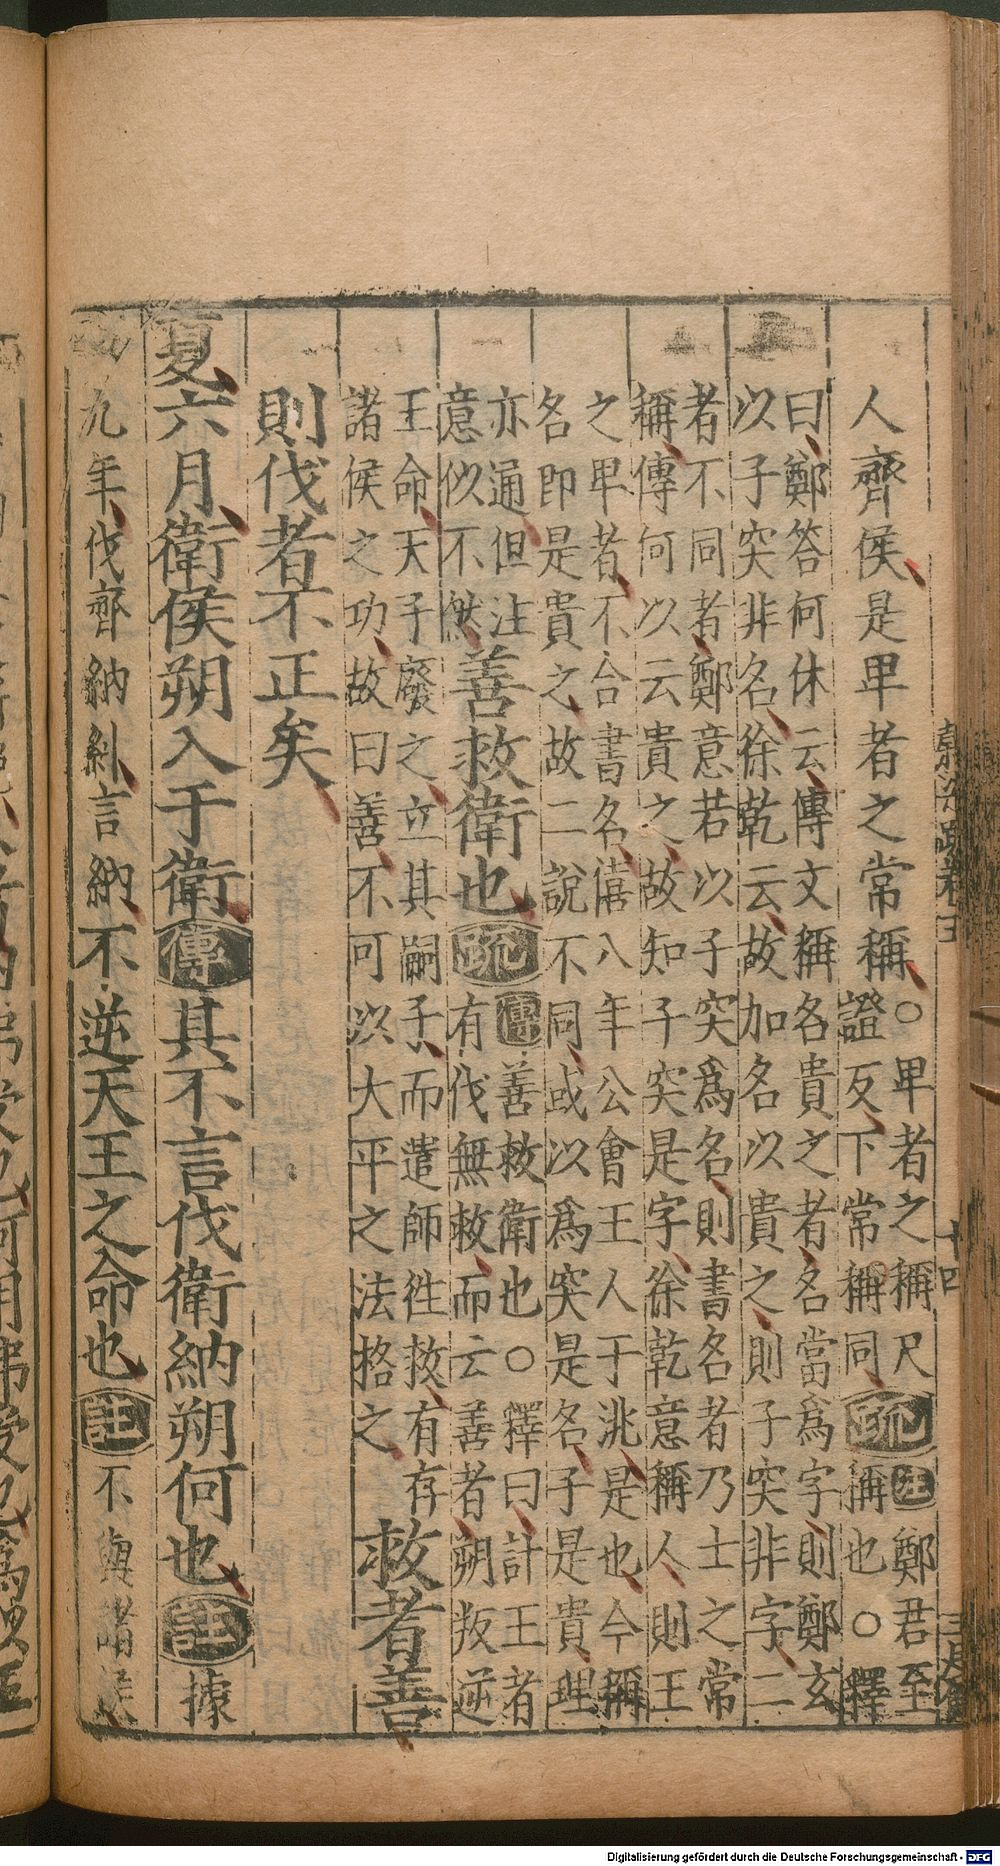 人齊侯是卑者之常稱
○卑者之稱尺
證反下常稱同
疏
注鄭君至
稱也○釋
曰鄭答何休云傳文稱名貴之者名當爲字則鄭玄
以子突非名徐乾云故加名以貴之則子突非字二
者不同者鄭意若以子突爲名則書名者乃士之常
稱傳何以云貴之故知子突是字徐乾意稱人則王
之卑者不合書名僖八年公會王人于洮是也今稱
名即是貴之故二說不同或以爲突是名子是貴理
亦通但注
意似不然
善救衛也疏
傳善救衛也○釋曰計王者
有伐無救而云善者朔叛逆
王命天子廢之立其嗣子而遣師往救有存
諸侯之功故曰善不可以大平之法格之
救者善
則伐者不正矣
夏六月衛侯朔入于衛傳其不言伐衛納朔何也註據
九年伐齊納糾言納不逆天王之命也註不與諸侯
十四
弗受也何用弗受也爲以王
Digitalisierung gefördert durch die Deutsche Forschungsgemeinschaft - DFG